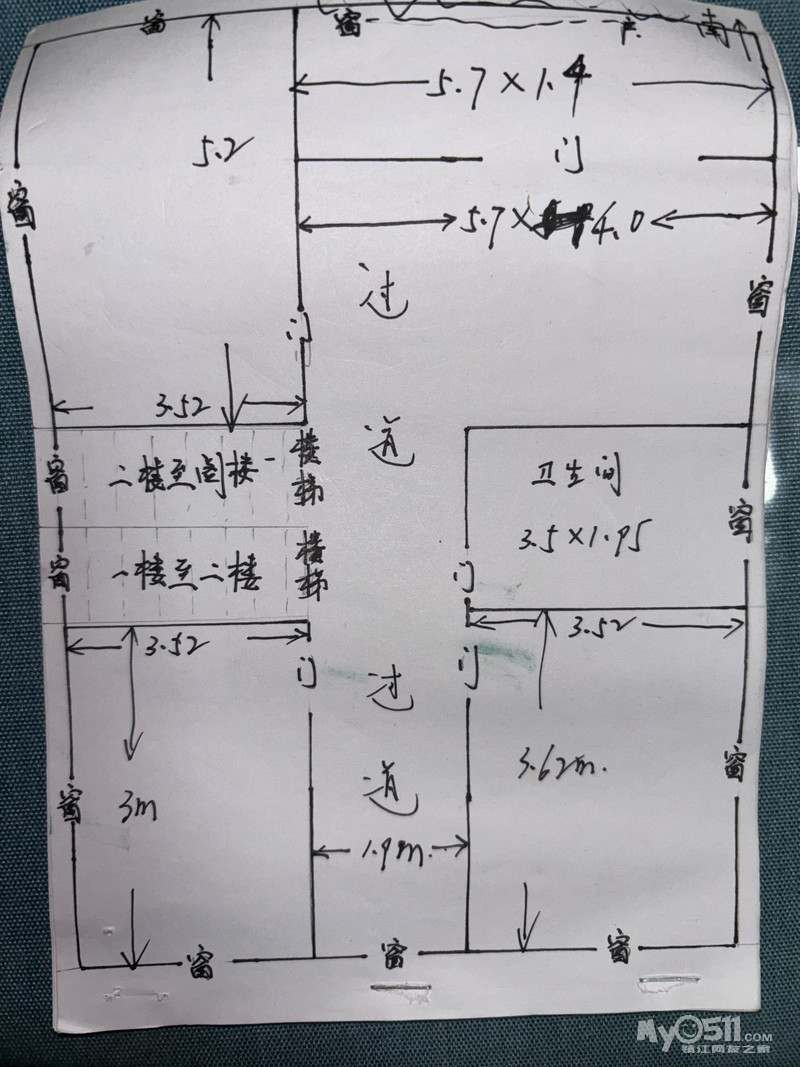 窗 窗 南
5.7×1.4
5.2 门
窗 5.7×4.0
过 窗
门
3.52
道
窗 二楼至阁楼 楼梯 卫生间 窗
3.5×1.95
窗 一楼至二楼 楼梯
门
3.52 3.52
门 过 门
3.62m. 窗
窗 3m 道
1.9m.
窗 窗 窗
My0511.COM
镇江网友之家